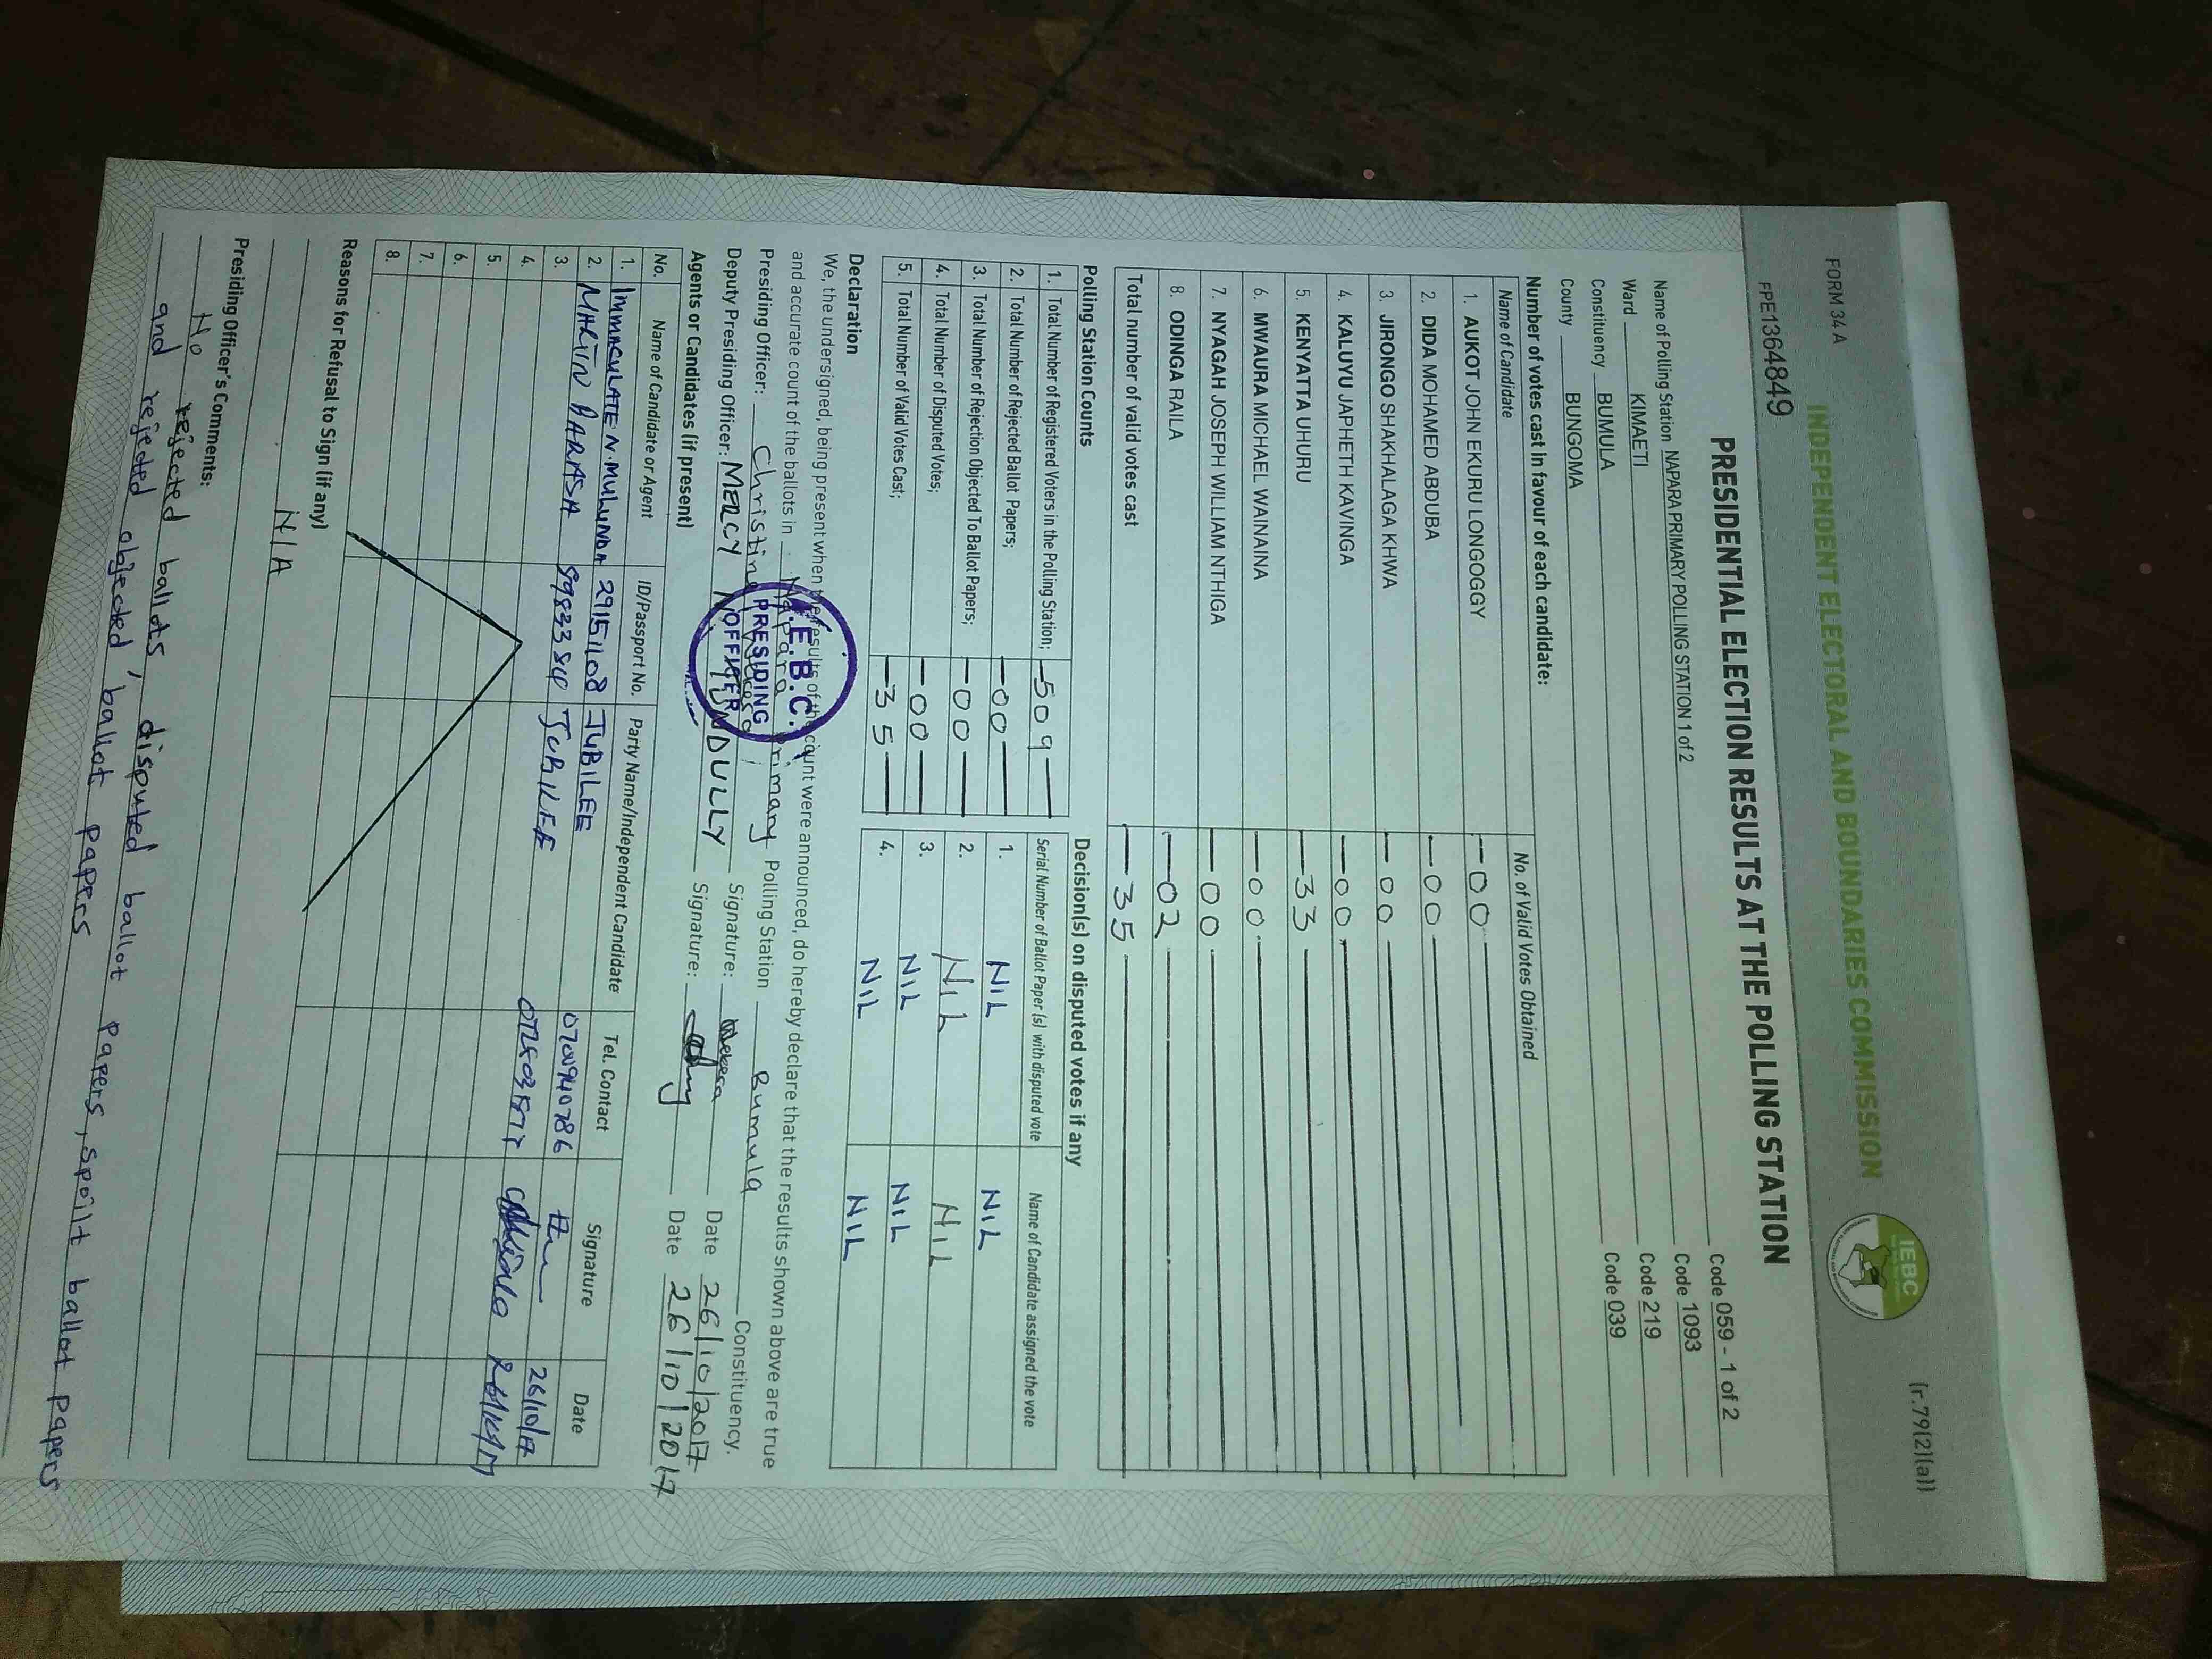 FORM 34 A
(r.79(2)(a))
INDEPENDENT ELECTORAL AND BOUNDARIES COMMISSION
IEBC
FPE1364849
PRESIDENTIAL ELECTION RESULTS AT THE POLLING STATION
Name of Polling Station NAPARA PRIMARY POLLING STATION 1 of 2 Code 059 - 1 of 2
Ward KIMAETI Code 1093
Constituency BUMULA Code 219
County BUNGOMA Code 039
Number of votes cast in favour of each candidate:
Name of Candidate No. of Valid Votes Obtained
1. AUKOT JOHN EKURU LONGOGGY 00
2. DIDA MOHAMED ABDUBA 00
3. JIRONGO SHAKHALAGA KHWA 00
4. KALUYU JAPHETH KAVINGA 00
5. KENYATTA UHURU 33
6. MWAURA MICHAEL WAINAINA 00
7. NYAGAH JOSEPH WILLIAM NTHIGA 00
8. ODINGA RAILA 02
Total number of valid votes cast 35
Polling Station Counts
1. Total Number of Registered Voters in the Polling Station; 509
2. Total Number of Rejected Ballot Papers; 00
3. Total Number of Rejection Objected To Ballot Papers; 00
4. Total Number of Disputed Votes; 00
5. Total Number of Valid Votes Cast; 35
Decision(s) on disputed votes if any
Serial Number of Ballot Paper (s) with disputed vote Name of Candidate assigned the vote
1. NIL NIL
2. NIL NIL
3. NIL NIL
4. NIL NIL
Declaration
We, the undersigned, being present when the results of the count were announced, do hereby declare that the results shown above are true
and accurate count of the ballots in Napara Primary Polling Station Bumula Constituency.
Presiding Officer: Christine Signature: Date 26/10/2017
Deputy Presiding Officer: MERCY Signature: Date 26/10/2017
I.E.B.C.
PRESIDING
OFFICER
Agents or Candidates (if present)
No. Name of Candidate or Agent ID/Passport No. Party Name/Independent Candidate Tel. Contact Signature Date
1. IMMACULATE N. MULUNDA 29151108 JUBILEE 0700940786 26/10/17
2. MARTIN BARASA JUBILEE
3.
4.
5.
6.
7.
8.
Reasons for Refusal to Sign (if any)
N/A
Presiding Officer's Comments:
No rejected ballots, disputed ballot papers, spoilt ballot papers
and rejected objected ballot papers